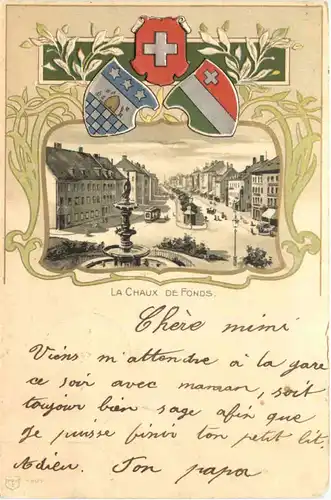 LA CHAUX DE FONDS.
Chère mimi
Viens m'attendre à la gare
ce soir avec maman, soit
toujour bien sage afin que
Je puisse finir ton petit lit.
Adieu. Ton papa